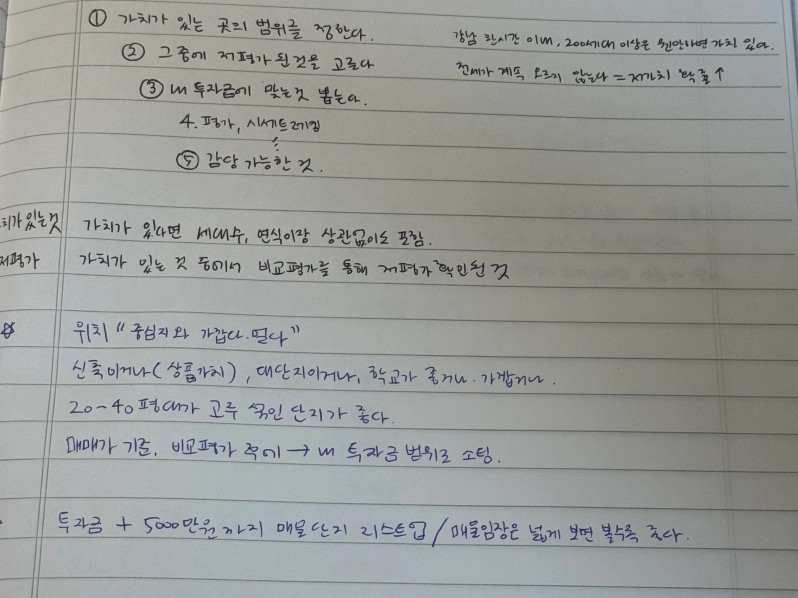 ① 가치가 있는 곳의 범위를 정한다.
강남 한시간 이내, 200세대 이상은 웬만하면 가치 있다.
② 그중에 저평가 된것을 고른다
전세가 계속 오르지 않는다 = 저가치 확률↑
③ 내 투자금에 맞는것 뽑는다.
4. 평가, 시세트레킹
⑤ 감당 가능한 것.
치가있는것 가치가 있다면 세대수, 연식이랑 상관없이도 포함.
저평가 가치가 있는 것 중에서 비교평가를 통해 저평가 확인된 것
☆ 위치 "중심지와 가깝다. 멀다"
신축이거나(상품가치), 대단지이거나, 학교가 좋거나. 가깝거나.
20~40평대가 고루 섞인 단지가 좋다.
매매가 기준, 비교평가 후에 → 내 투자금 범위로 소팅.
투자금 + 5000만원까지 매물단지 리스트업 / 매물임장은 넓게 보면 볼수록 좋다.